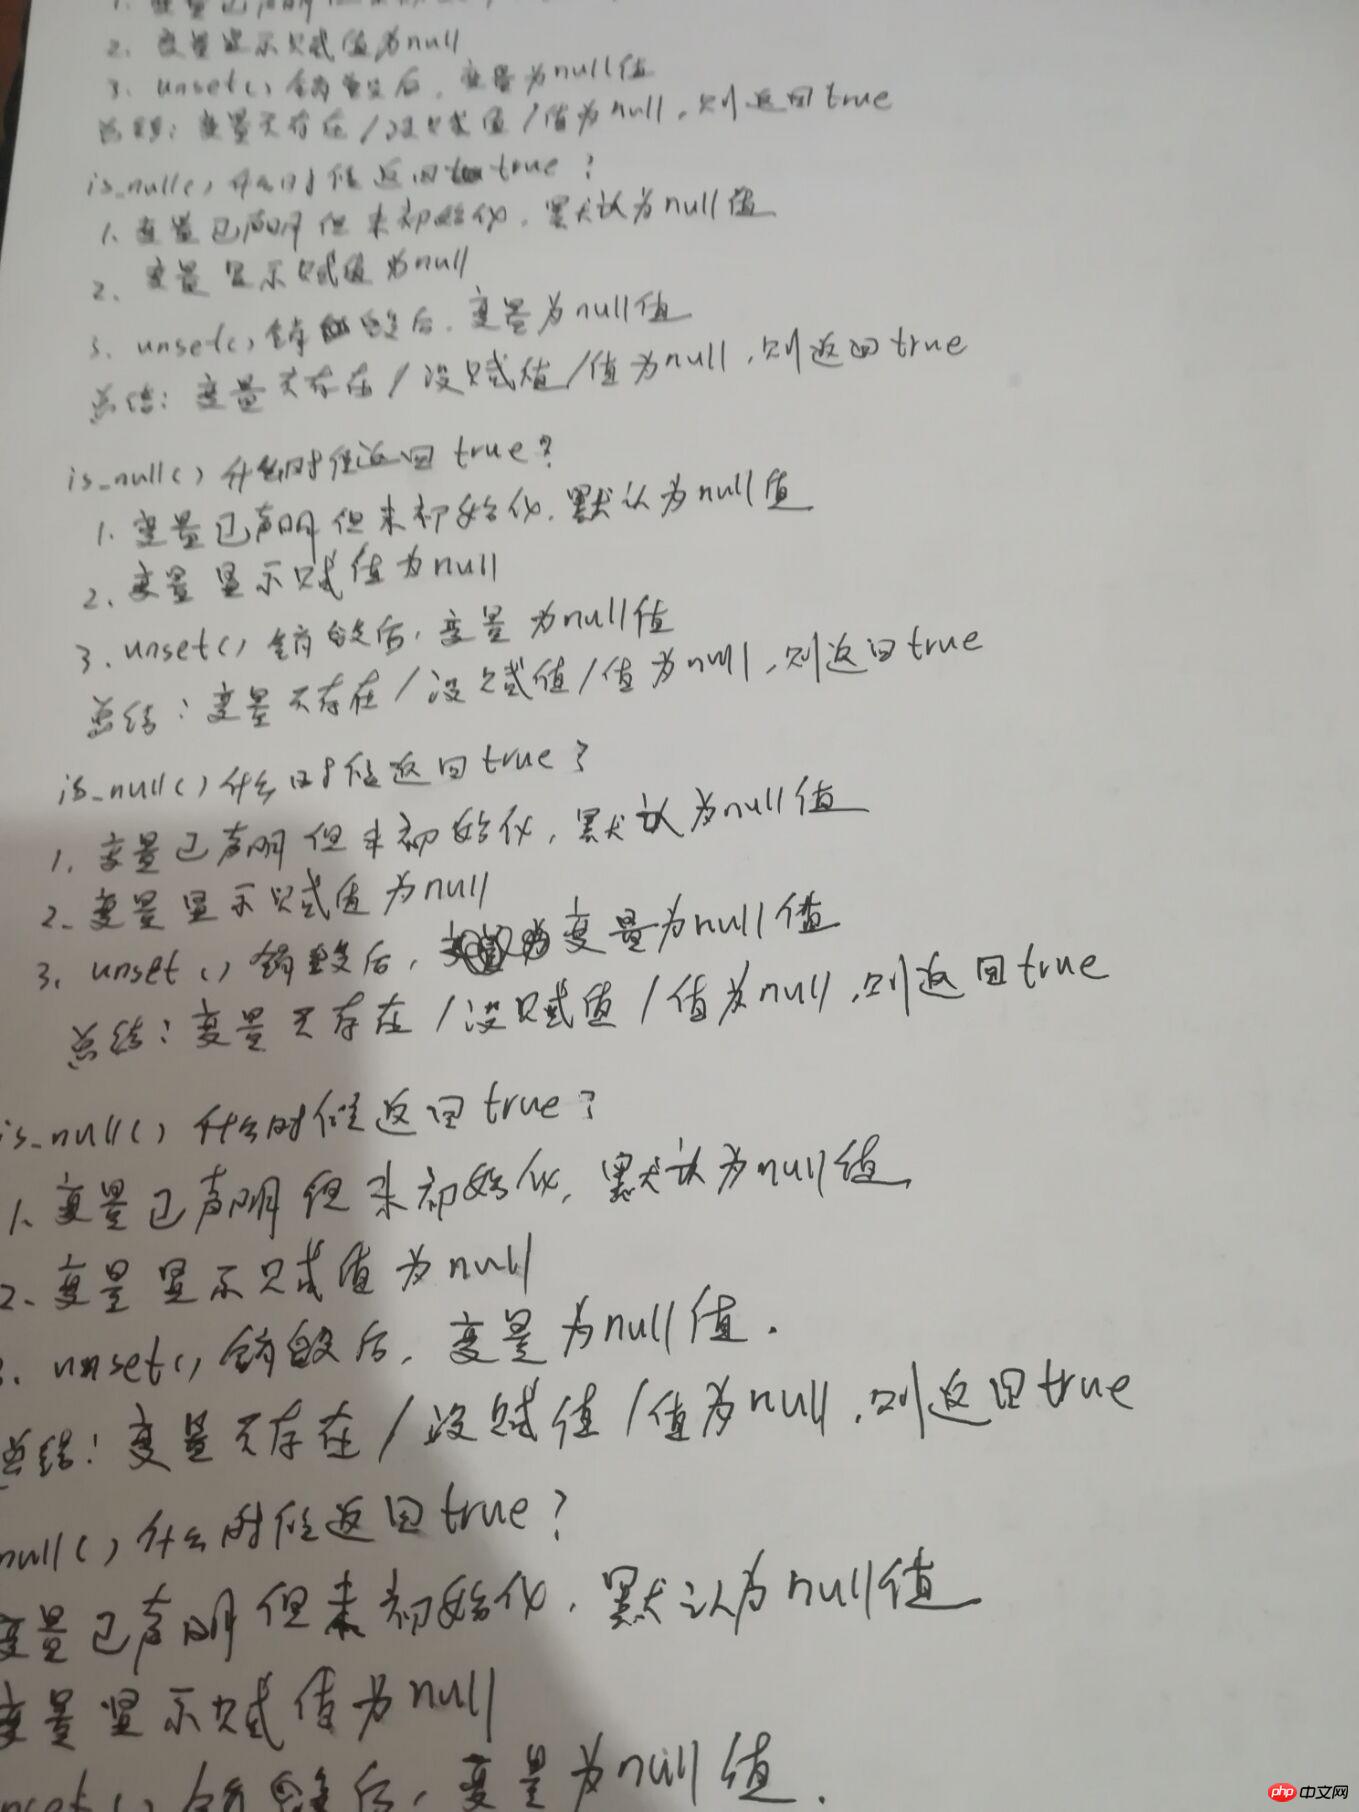 1. 变量已声明但未初始化,
2. 变量显示赋值为null
3. unset()销毁后,变量为null值
总结:变量不存在/没赋值/值为null,则返回true
is_null()什么时候返回true?
1. 变量已声明但未初始化,默认为null值
2. 变量显示赋值为null
3. unset()销毁后,变量为null值
总结:变量不存在/没赋值/值为null,则返回true
is_null()什么时候返回true?
1. 变量已声明但未初始化,默认为null值
2. 变量显示赋值为null
3. unset()销毁后,变量为null值
总结:变量不存在/没赋值/值为null,则返回true
is_null()什么时候返回true?
1. 变量已声明但未初始化,默认为null值
2. 变量显示赋值为null
3. unset()销毁后,变量为null值
总结:变量不存在/没赋值/值为null,则返回true
is_null()什么时候返回true?
1. 变量已声明但未初始化,默认为null值
2. 变量显示赋值为null
3. unset()销毁后,变量为null值.
总结:变量不存在/没赋值/值为null,则返回true
null()什么时候返回true?
变量已声明但未初始化,默认为null值
变量显示赋值为null
nset()销毁后,变量为null值.
php中文网